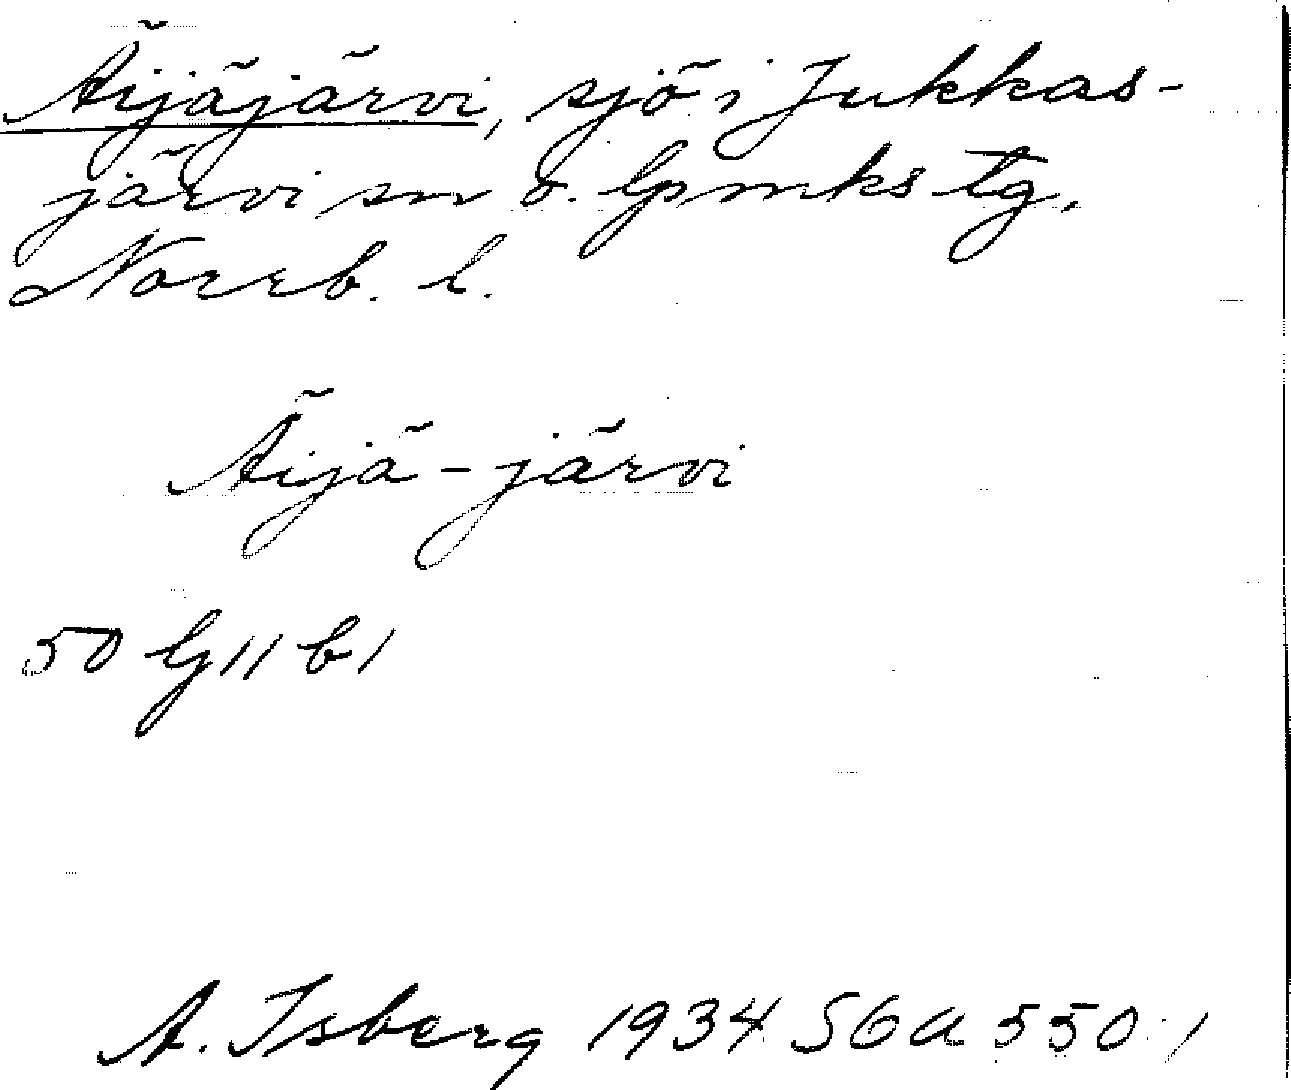 Äijäjärvi, sjö i Jukkas-
järvi sn o. lpmks tg,
Norrb. l.
Äijä-järvi
50 G 11 b 1
A. Isberg 1934 SGA 550:1